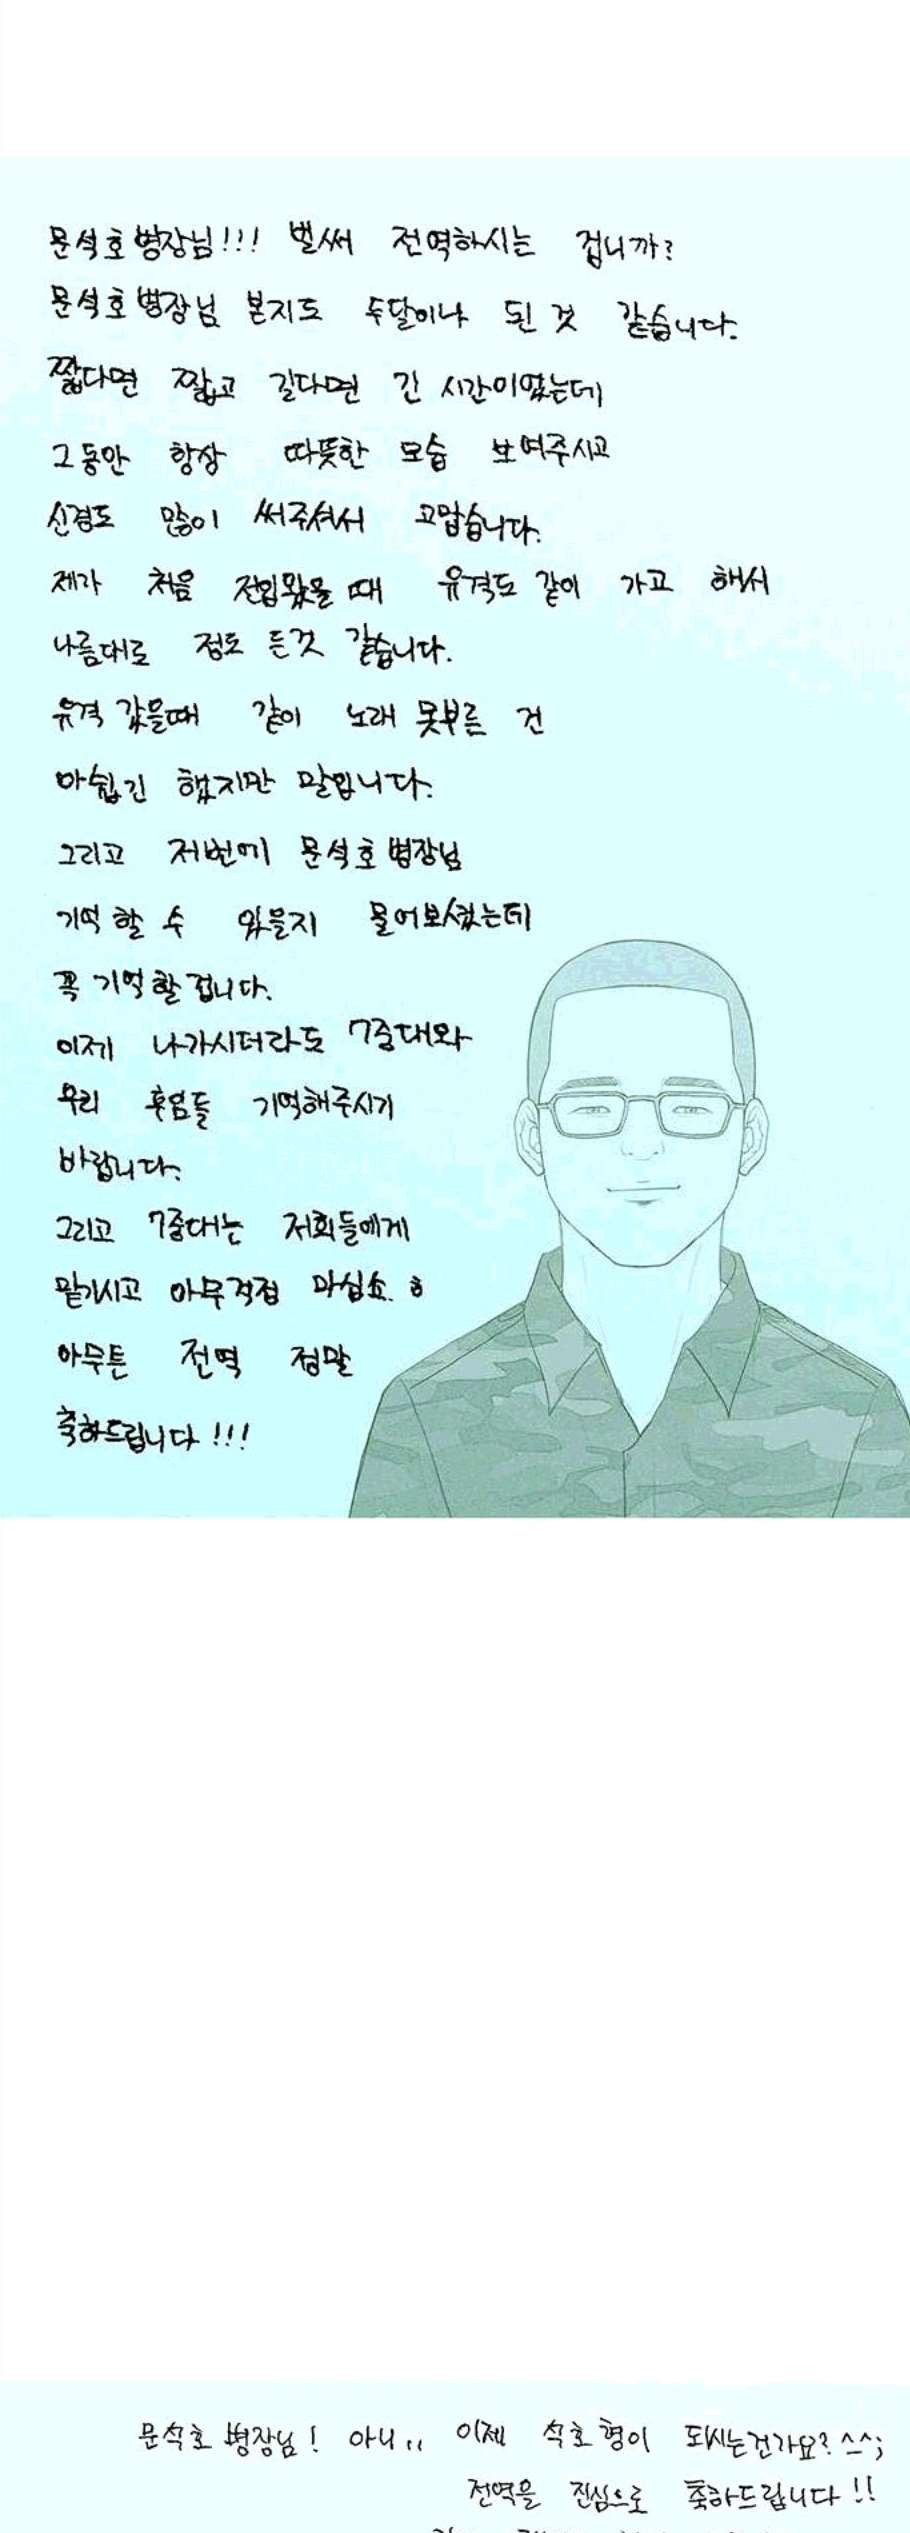 문석호병장님!!! 벌써 전역하시는 겁니까?
문석호병장님 본지도 두달이나 된 것 같습니다.
짧다면 짧고 길다면 긴 시간이였는데
그동안 항상 따뜻한 모습 보여주시고
신경도 많이 써주셔서 고맙습니다.
제가 처음 전입왔을 때 유격도 같이 가고 해서
나름대로 정도 든것 같습니다.
유격 갔을때 같이 노래 못부른 건
아쉽긴 했지만 말입니다.
그리고 저번에 문석호병장님
기억 할 수 있을지 물어보셨는데
꼭 기억할겁니다.
이제 나가시더라도 7중대와
우리 후임들 기억해주시기
바랍니다.
그리고 7중대는 저희들에게
맡기시고 아무걱정 마십쇼. ㅎ
아무튼 전역 정말
축하드립니다!!!
문석호 병장님! 아니,, 이제 석호형이 되시는건가요? ^^;
전역을 진심으로 축하드립니다!!